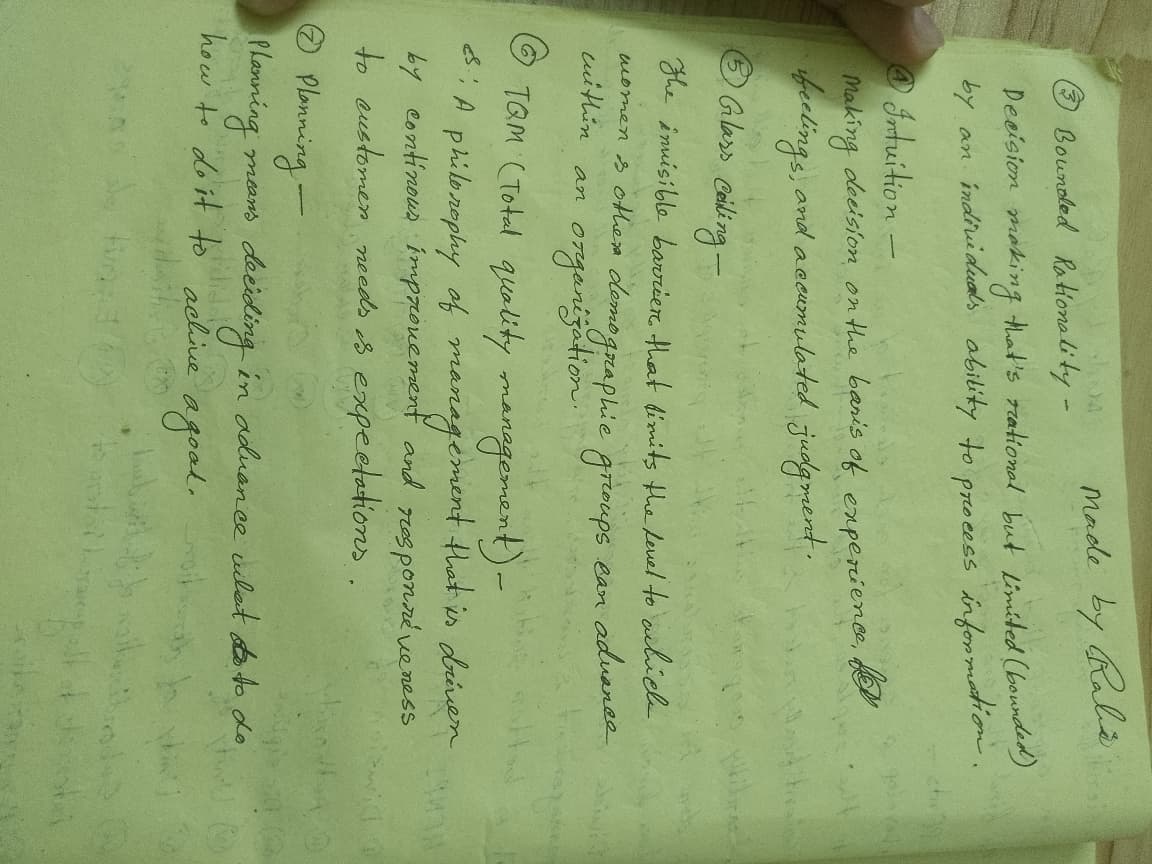 Made by Rabi
③ Bounded Rationality -
Decision making that's rational but limited (bounded)
by an individuals ability to process information.
④ Intuition —
Making decision on the basis of experience,
feelings, and accumulated judgment.
⑤ Glass ceiling —
The invisible barrier that limits the level to which
women & other demographic groups can advance
within an organization.
⑥ TQM (Total quality management) -
A philosophy of management that is driven
by continous improvement and responsiveness
to customer needs & expectations.
⑦ Planning —
Planning means deciding in advance what to do
how to do it to achive a goal.